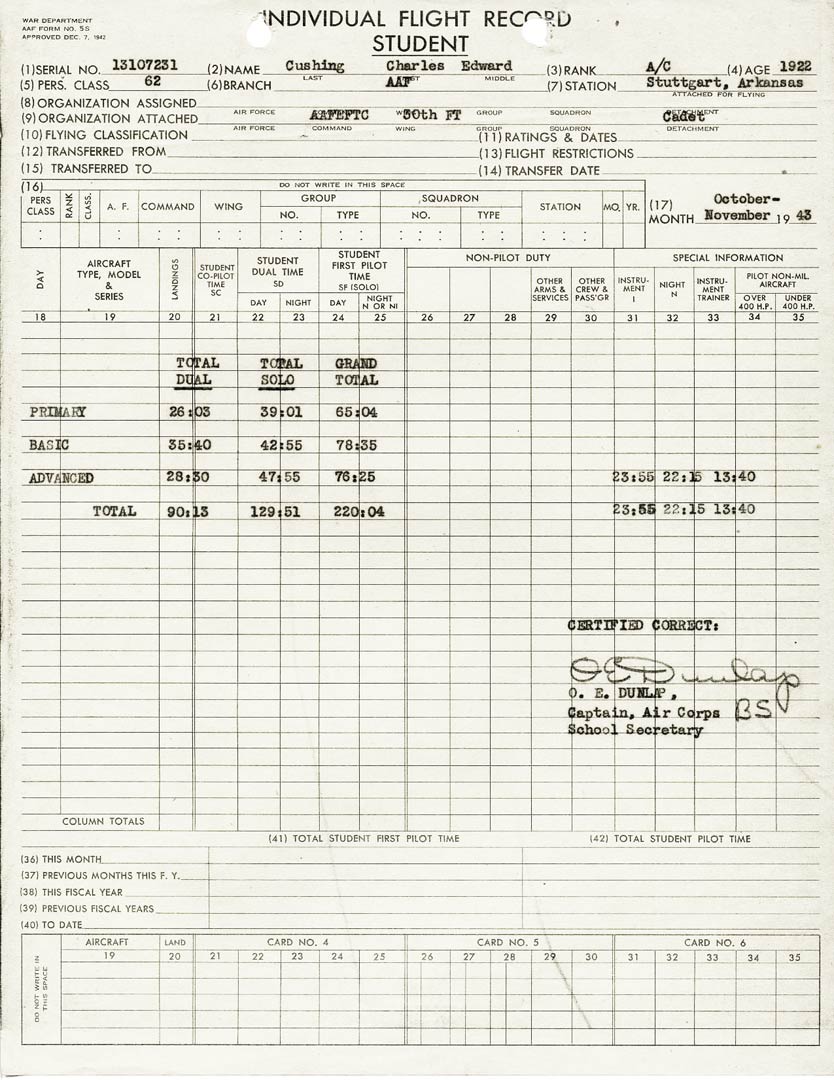 WAR DEPARTMENT
AAF FORM NO. 5S
APPROVED DEC. 7, 1942
INDIVIDUAL FLIGHT RECORD
STUDENT
(1) SERIAL NO. 13107231 (2) NAME Cushing Charles Edward (3) RANK A/C (4) AGE 1922
LAST FIRST MIDDLE
(5) PERS. CLASS 62 (6) BRANCH AAF (7) STATION Stuttgart, Arkansas
ATTACHED FOR FLYING
(8) ORGANIZATION ASSIGNED
AIR FORCE WING GROUP SQUADRON DETACHMENT
(9) ORGANIZATION ATTACHED AAFEFTC 30th FT Cadet
AIR FORCE COMMAND WING GROUP SQUADRON DETACHMENT
(10) FLYING CLASSIFICATION (11) RATINGS & DATES
(12) TRANSFERRED FROM (13) FLIGHT RESTRICTIONS
(15) TRANSFERRED TO (14) TRANSFER DATE
(16) DO NOT WRITE IN THIS SPACE
PERS CLASS RANK CLASS. A. F. COMMAND WING GROUP NO. TYPE SQUADRON NO. TYPE STATION MO. YR. (17) MONTH October-
November 1943
DAY AIRCRAFT TYPE, MODEL & SERIES LANDINGS STUDENT CO-PILOT TIME SC STUDENT DUAL TIME SD DAY NIGHT STUDENT FIRST PILOT TIME SF (SOLO) DAY NIGHT N OR NI NON-PILOT DUTY OTHER ARMS & SERVICES OTHER CREW & PASS'GR SPECIAL INFORMATION INSTRUMENT I NIGHT N INSTRUMENT TRAINER PILOT NON-MIL. AIRCRAFT OVER 400 H.P. UNDER 400 H.P.
18 19 20 21 22 23 24 25 26 27 28 29 30 31 32 33 34 35
TOTAL TOTAL GRAND
DUAL SOLO TOTAL
PRIMARY 26:03 39:01 65:04
BASIC 35:40 42:55 78:35
ADVANCED 28:30 47:55 76:25 23:55 22:15 13:40
TOTAL 90:13 129:51 220:04 23:55 22:15 13:40
CERTIFIED CORRECT:
O E Dunlap
O. E. DUNLAP,
Captain, Air Corps BS
School Secretary
COLUMN TOTALS
(41) TOTAL STUDENT FIRST PILOT TIME (42) TOTAL STUDENT PILOT TIME
(36) THIS MONTH
(37) PREVIOUS MONTHS THIS F. Y.
(38) THIS FISCAL YEAR
(39) PREVIOUS FISCAL YEARS
(40) TO DATE
DO NOT WRITE IN THIS SPACE
AIRCRAFT LAND CARD NO. 4 CARD NO. 5 CARD NO. 6
19 20 21 22 23 24 25 26 27 28 29 30 31 32 33 34 35